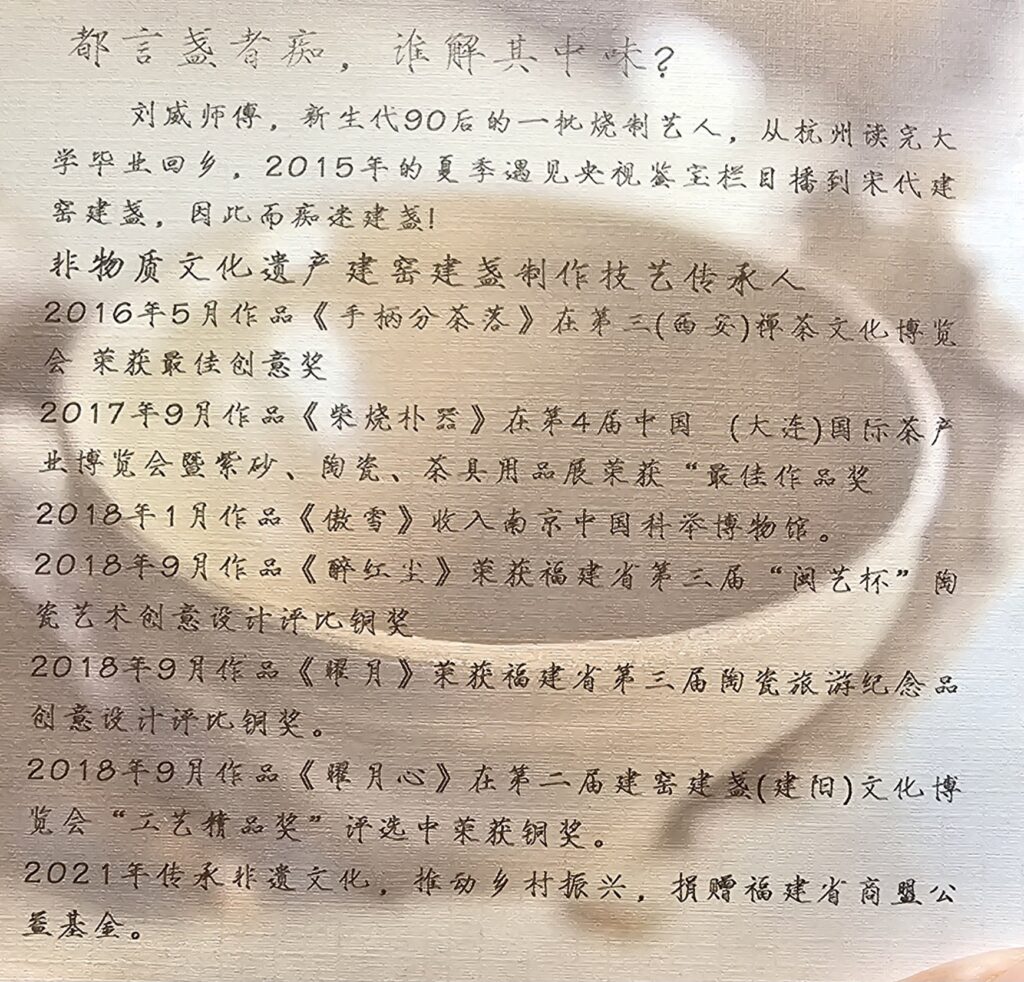 都言盏者痴，谁解其中味？
刘威师傅，新生代90后的一批烧制艺人，从杭州读完大
学毕业回乡，2015年的夏季遇见央视鉴宝栏目播到宋代建
窑建盏，因此而痴迷建盏！
非物质文化遗产建窑建盏制作技艺传承人
2016年5月作品《手柄分茶落》在第三(西安)禅茶文化博览
会 荣获最佳创意奖
2017年9月作品《柴烧朴器》在第4届中国 (大连)国际茶产
业博览会暨紫砂、陶瓷、茶具用品展荣获“最佳作品奖
2018年1月作品《傲雪》收入南京中国科举博物馆。
2018年9月作品《醉红尘》荣获福建省第三届“闽艺杯”陶
瓷艺术创意设计评比铜奖
2018年9月作品《曜月》荣获福建省第三届陶瓷旅游纪念品
创意设计评比铜奖。
2018年9月作品《曜月心》在第二届建窑建盏(建阳)文化博
览会“工艺精品奖”评选中荣获铜奖。
2021年传承非遗文化，推动乡村振兴，捐赠福建省商盟公
益基金。